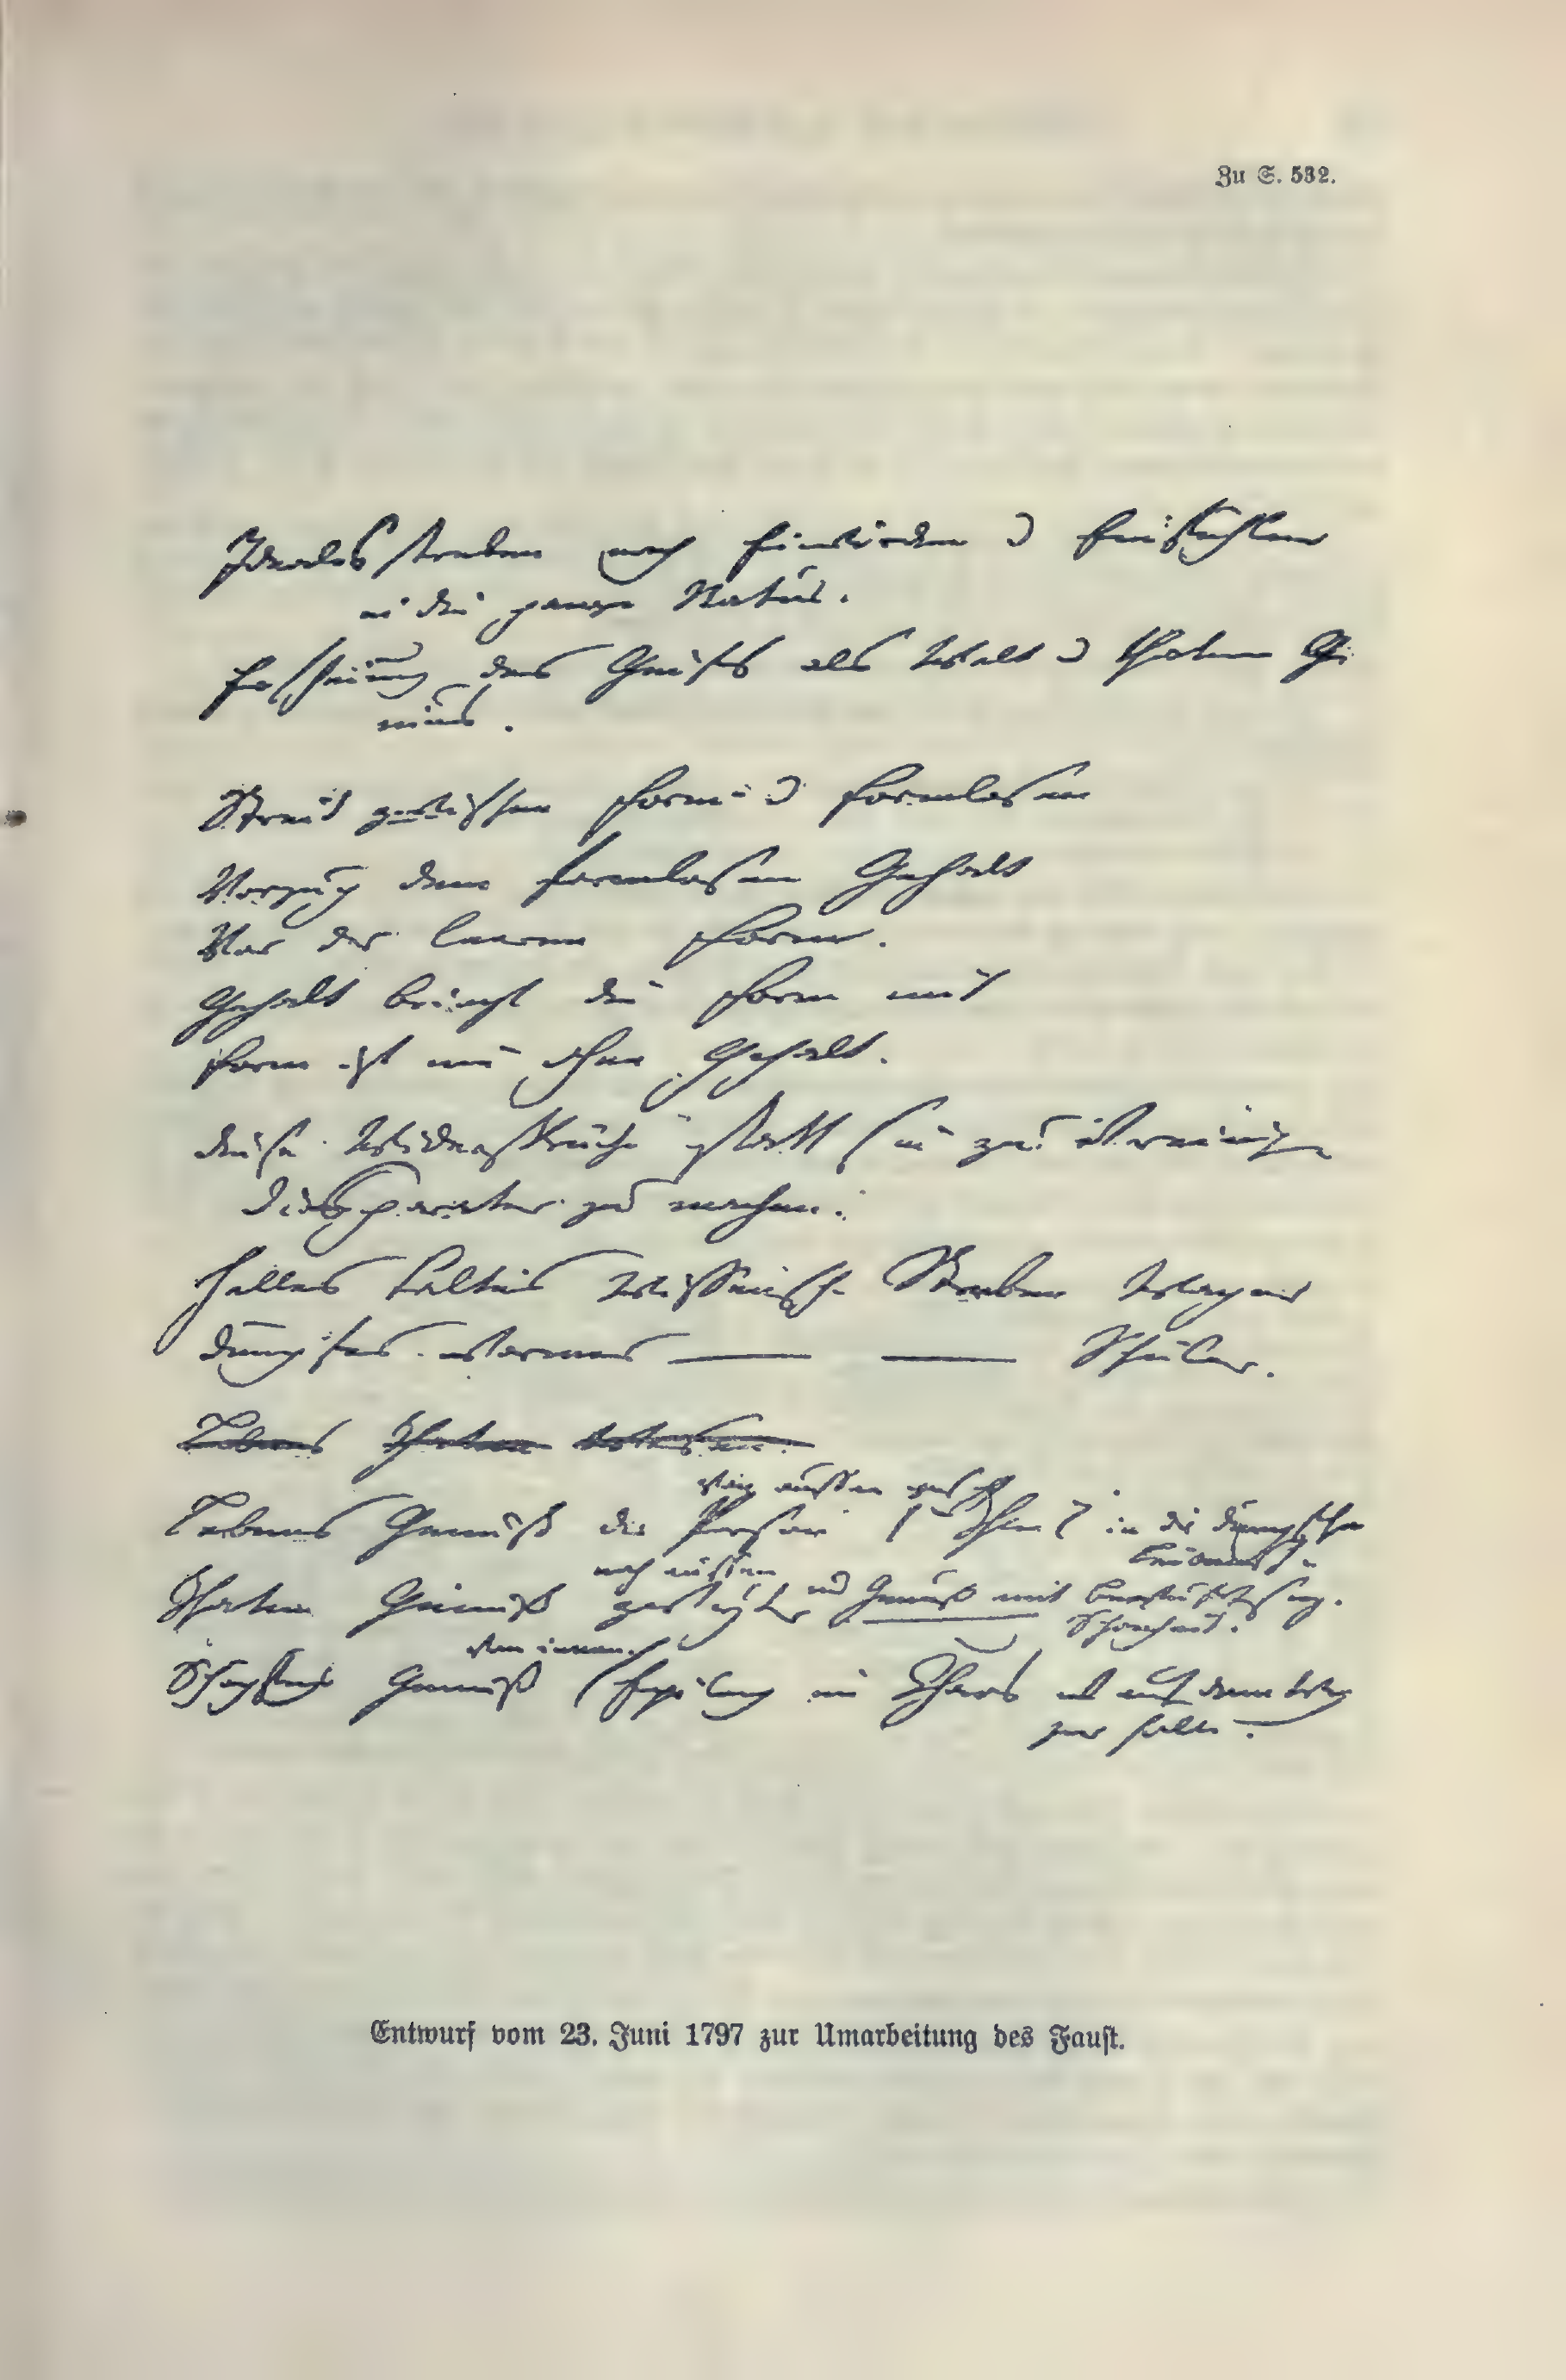 Zu S. 532.
Ideales Streben nach Einwirken und Einfühlen
in die ganze Natur.
Erscheinung des Geists als Welt und Thaten Ge
nius.
Streit zwischen Form und Formlosen
Vorzug dem formlosen Gehalt
Vor der leeren Form.
Gehalt bringt die Form mit
Form ist nie ohne Gehalt.
Diese Widersprüche statt sie zu vereinigen
disparater zu machen.
Helles kaltes Wissensch. Streben Wagner
Dumpfes warmes — — Schüler.
Lebens Thaten Wesen.
von aussen gesehn
Lebens Genuß der Person in der Dumpfheit
Leidenschaft
nach aussen
Thaten Genuß zweyter und Genuß mit Bewußtseyn.
Schönheit.
von innen
Schöpfungs Genuß Epilog im Chaos auf dem Weg
zur Hölle.
Entwurf vom 23. Juni 1797 zur Umarbeitung des Faust.